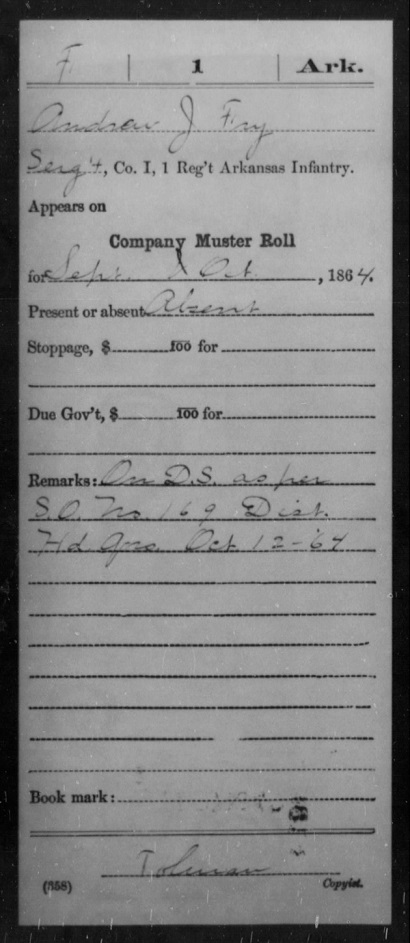 F | 1 | Ark.
Andrew J Fry
Serg't, Co. I, 1 Reg't Arkansas Infantry.
Appears on
Company Muster Roll
for Sept. & Oct. , 1864.
Present or absent Absent
Stoppage, $ 100 for
Due Gov't, $ 100 for
Remarks: On D.S. as per
S.O. No. 169 Dist.
Hd Qrs. Oct 12-'64
Book mark:
Tolman
(358) Copyist.